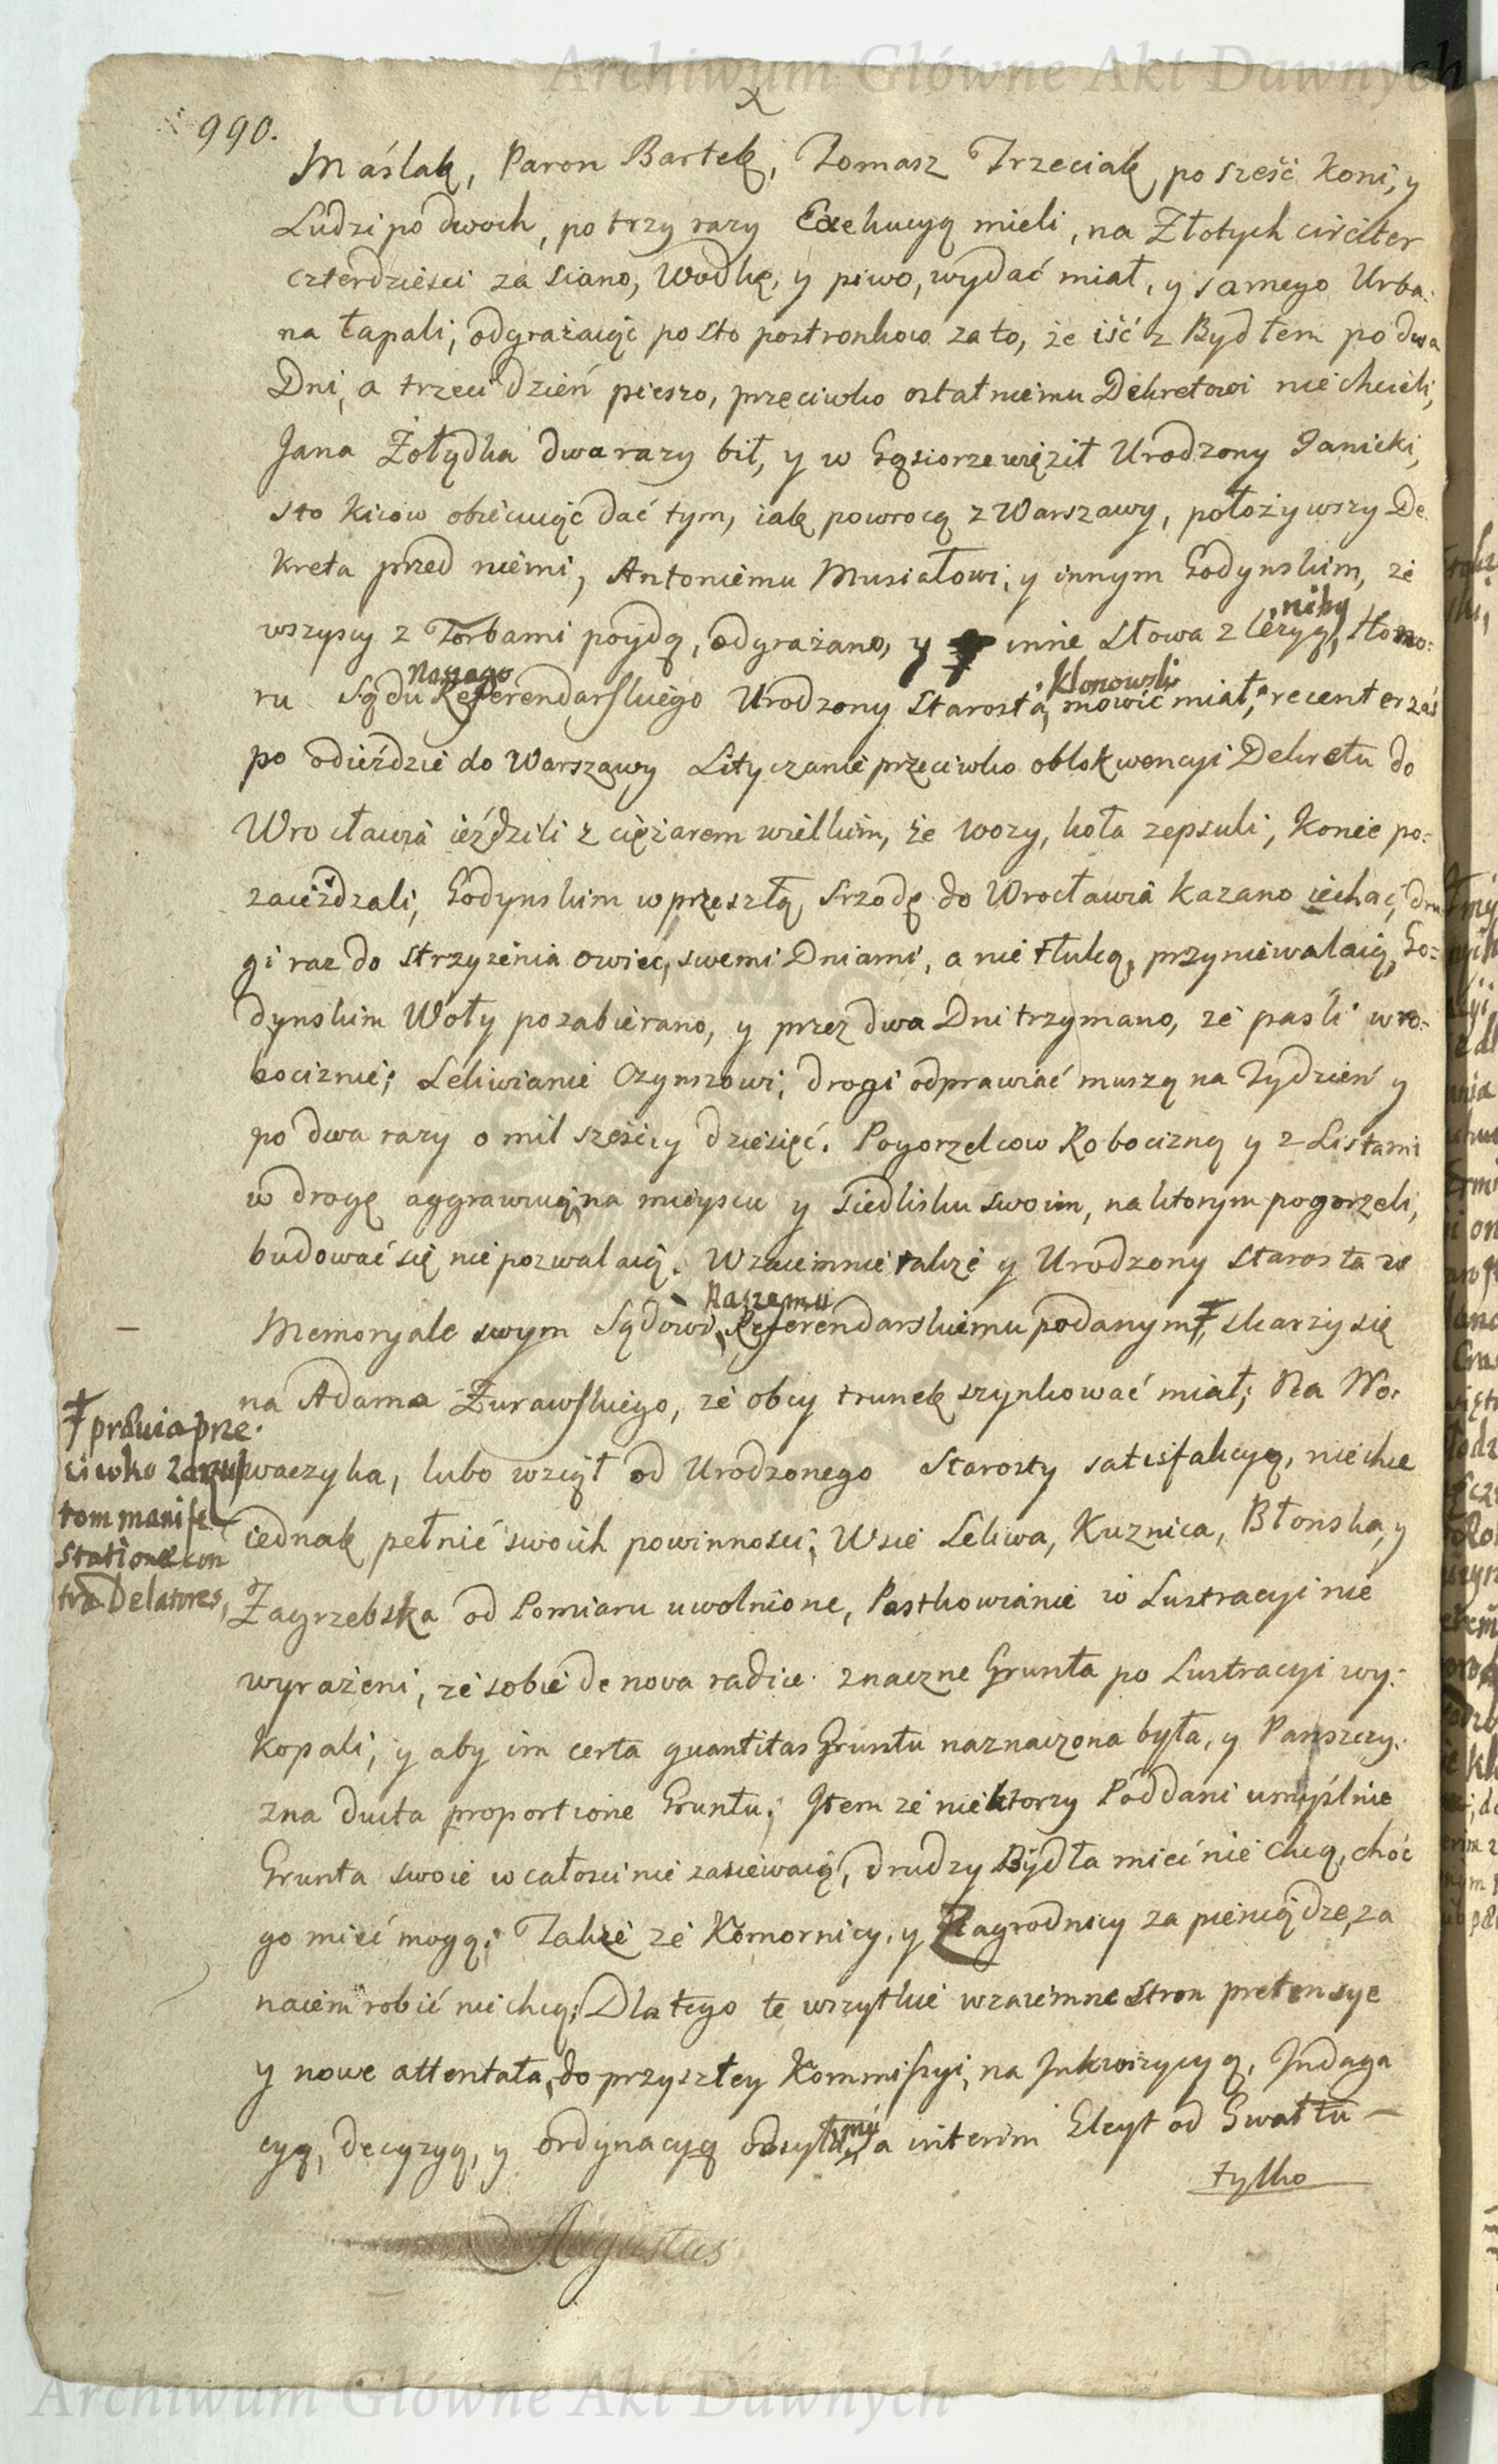 Archiwum Główne Akt Dawnych
990.
Máślak, Paron Bartek, Tomasz Trzeciak, po sześć koni, y
Ludzi po dwoch, po trzy razy Exekucyą mieli, na Złotych circiter
czterdziesci za siano, Wodkę, y piwo, wydać miał, y samego Urba:
na łapali, odgrażaiąc po sto postronkow za to, że iść z Bydłem po dwa
Dni, a trzeci dzień pieszo, przeciwko ostatniemu Dekretowi niechcieli,
Jana Żołądka dwa razy bił, y w Gąsiorze więził Urodzony Janicki,
sto kiiow obiecuiąc dać tym, iak powrocą z Warszawy, położywszy De
kreta przed niemi, Antoniemu Musiałowi, y innym Godynskim, że
wszyscy z Torbami poydą, odgrażano, y inne Słowa z lezyą niby Hono:
ru Sądu Naszego Referendarskiego Urodzony Starosta Klonowski mowić miał; recenter zaś
po odieździe do Warszawy Lityczanie przeciwko oblokwencyi Dekretu do
Wrocławia ieździli z ciężarem wielkim, że wozy, koła zepsuli, Konie po:
zaieżdzali, Godynskim w przeszłą Srzodę do Wrocławia kazano iechać, dru
gi raz do strzyżenia owiec, swemi Dniami, a nie tłuką, przyniewalaią, Go:
dynskim Woły pozabierano, y przez dwa Dni trzymano, że pasli w ro:
bociznie; Leliwianie Czynszowi, drogi odprawiać muszą na Tydzień y
po dwa razy o mil sześć y dziesięć. Pogorzelcow Robocizną y z Listami
w drogę aggrawuią, na mieyscu y siedlisku swoim, na ktorym pogorzeli,
budować się nie pozwalaią. Wzaiemnie także y Urodzony Starosta w
Memoryale swym Sądowi Naszemu Referendarskiemu podanym, skarzy się
na Adama Żurawskiego, że obcy trunek szynkować miał; Na Wo:
waczyka, lubo wziął od Urodzonego Starosty satisfakcyą, niechce
iednak pełnić swoich powinnosci; Wsie Leliwa, Kuznica, Błonska, y
Zagrzebska od Pomiaru uwolnione, Pastkowianie w Lustracyi nie
wyrażeni, że sobie de nova radice znaczne Grunta po Lustracyi wy:
kopali, y aby im certa quantitas Gruntu naznaczona była, y Panszczy:
zna ducta proportione Gruntu; Item że niektorzy Poddani umyślnie
Grunta swoie w całosci nie zasiewaią, drudzy Bydła mieć nie chcą, choć
go mieć mogą; Także że Komornicy, y Zagrodnicy za pieniądze, za
naiem robić niechcą; Dla tego te wszytkie wzaiemne stron pretensye
y nowe attentata, do przyszłey Kommissyi, na Inkwizycyą, Indaga
cyą, decyzyą, y ordynacyą odsyłamy, a interim Elcyt od Gwałtu
tylko
Augustus
prawia prze
ciwko zarzu
tom manife
statione con
tra Delatores,
Archiwum Główne Akt Dawnych